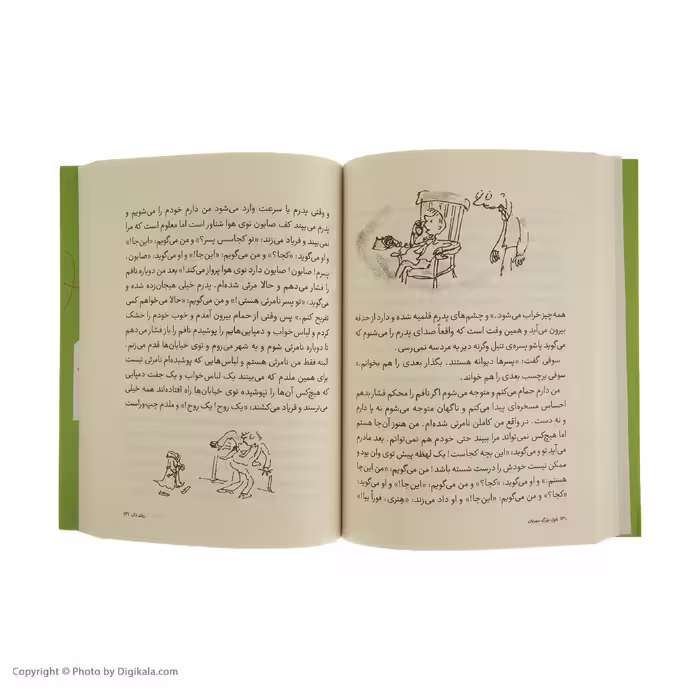 همه‌چیز خراب می‌شود.» و چشم‌های پدرم قلمبه شده و دارد از حدقه
بیرون می‌آید و همین وقت است که واقعاً صدای پدرم را می‌شنوم که
می‌گوید پاشو پسره‌ی تنبل وگرنه دیر به مدرسه نمی‌رسی.
سوفی گفت: «پسرها دیوانه هستند. بگذار بعدی را هم بخوانم.»
سوفی برچسب بعدی را هم خواند.
من دارم حمام می‌کنم و متوجه می‌شوم اگر نافم را محکم فشار بدهم
احساس مسخره‌ای پیدا می‌کنم و ناگهان متوجه می‌شوم نه پا دارم
و نه دست. در واقع من کاملن نامرئی شده‌ام. من هنوز آن‌جا هستم
اما هیچ‌کس نمی‌تواند مرا ببیند حتی خودم هم نمی‌توانم. بعد مادرم
می‌آید تو و می‌گوید: «این بچه کجاست! یک لحظه پیش توی وان بود و
ممکن نیست خودش را درست شسته باشد! من می‌گویم: «من این‌جا
هستم.» و او می‌گوید:
«کجا؟» و من می‌گویم: «این‌جا!» و او داد می‌زند: «هنری، فوراً بیا!»
۵۳۰ غول بزرگ مهربان
و وقتی پدرم با سرعت وارد می‌شود من دارم خودم را می‌شویم و
پدرم می‌بیند کف صابون توی هوا شناور است اما معلوم است که مرا
نمی‌بیند و فریاد می‌زند: «تو کجاسس پسر؟» و من می‌گویم: «این‌جا!»
و او می‌گوید: «کجا؟» و من می‌گویم: «این‌جا!» و او می‌گوید: «صابون،
پسرم! صابون! صابون دارد توی هوا پرواز می‌کند!» بعد من دوباره نافم
را فشار می‌دهم و حالا مرئی شده‌ام. پدرم خیلی هیجان‌زده شده و
می‌گوید: «تو پسر نامرئی هستی!» و من می‌گویم: «حالا می‌خواهم کمی
تفریح کنم.» پس وقتی از حمام بیرون آمدم و خوب خودم را خشک
کردم و لباس‌خواب و دمپایی‌هایم را پوشیدم نافم را باز فشار می‌دهم
تا دوباره نامرئی شوم و به شهر می‌روم و توی خیابان‌ها قدم می‌زنم.
البته فقط من نامرئی هستم و لباس‌هایی که پوشیده‌ام نامرئی نیست
برای همین ملدم که می‌بینند یک لباس‌خواب و یک جفت دمپایی
که هیچ‌کس آن‌ها را نپوشیده توی خیابان‌ها راه افتاده‌اند همه خیلی
می‌ترسند و فریاد می‌کشند: «یک روح! یک روح!» و ملدم چپ‌وراست
رولد دال ۵۳۱
Copyright © Photo by Digikala.com